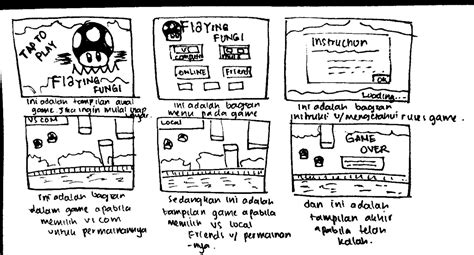 TAP TO PLAY
FLAYING
FUNGI
Ini adalah tampilan awal
game jika ingin mulai tap
layar.
FLAYING
FUNGI
VS
ONLINE
Friends
Ini adalah bagian
menu pada game
Instruction
OK
Loading...
Ini adalah bagian
instruksi u/ mengetahui rules game.
VS COM
Ini adalah bagian
dalam game apabila
memilih vs com
untuk permainannya
LOCAL
Sedangkan ini adalah
tampilan game apabila
memilih vs local
Friends u/ permainan
-nya.
GAME
OVER
dan ini adalah
tampilan akhir
apabila telah
kalah.